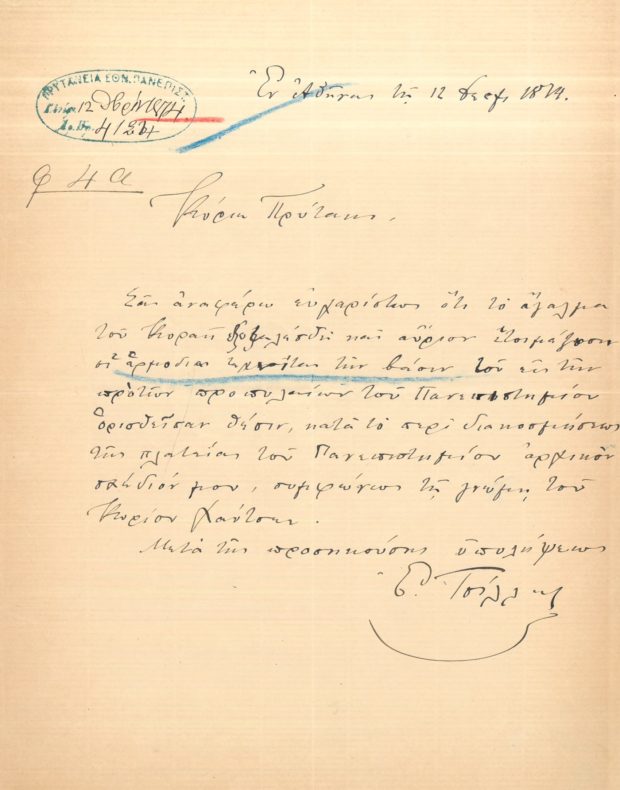 ΠΡΥΤΑΝΕΙΑ ΕΘΝ. ΠΑΝΕΠΙΣΤ.
12 1874
4124
Ἐν Ἀθήναις τῇ 12 1874.
Φ 4 α
Κύριε Πρύτανις,
Σᾶς ἀναφέρω εὐχαρίστως ὅτι τὸ ἄγαλμα
τοῦ Κοραῆ καὶ αὔριον ἑτοιμάζουσι
οἱ ἁρμόδιοι τεχνῖται τὴν βάσιν τοῦ εἰς τὴν
πρὸ τῶν προπυλαίων τοῦ Πανεπιστημίου
ὁρισθεῖσαν θέσιν, κατὰ τὸ περὶ διακοσμήσεως
τῆς πλατείας τοῦ Πανεπιστημίου ἀρχικὸν
σχέδιόν μου, συμφώνως τῇ γνώμῃ τοῦ
Κυρίου Χάνσεν.
Μετὰ τῆς προσηκούσης ὑπολήψεως
Ἐ. Τσίλλερ